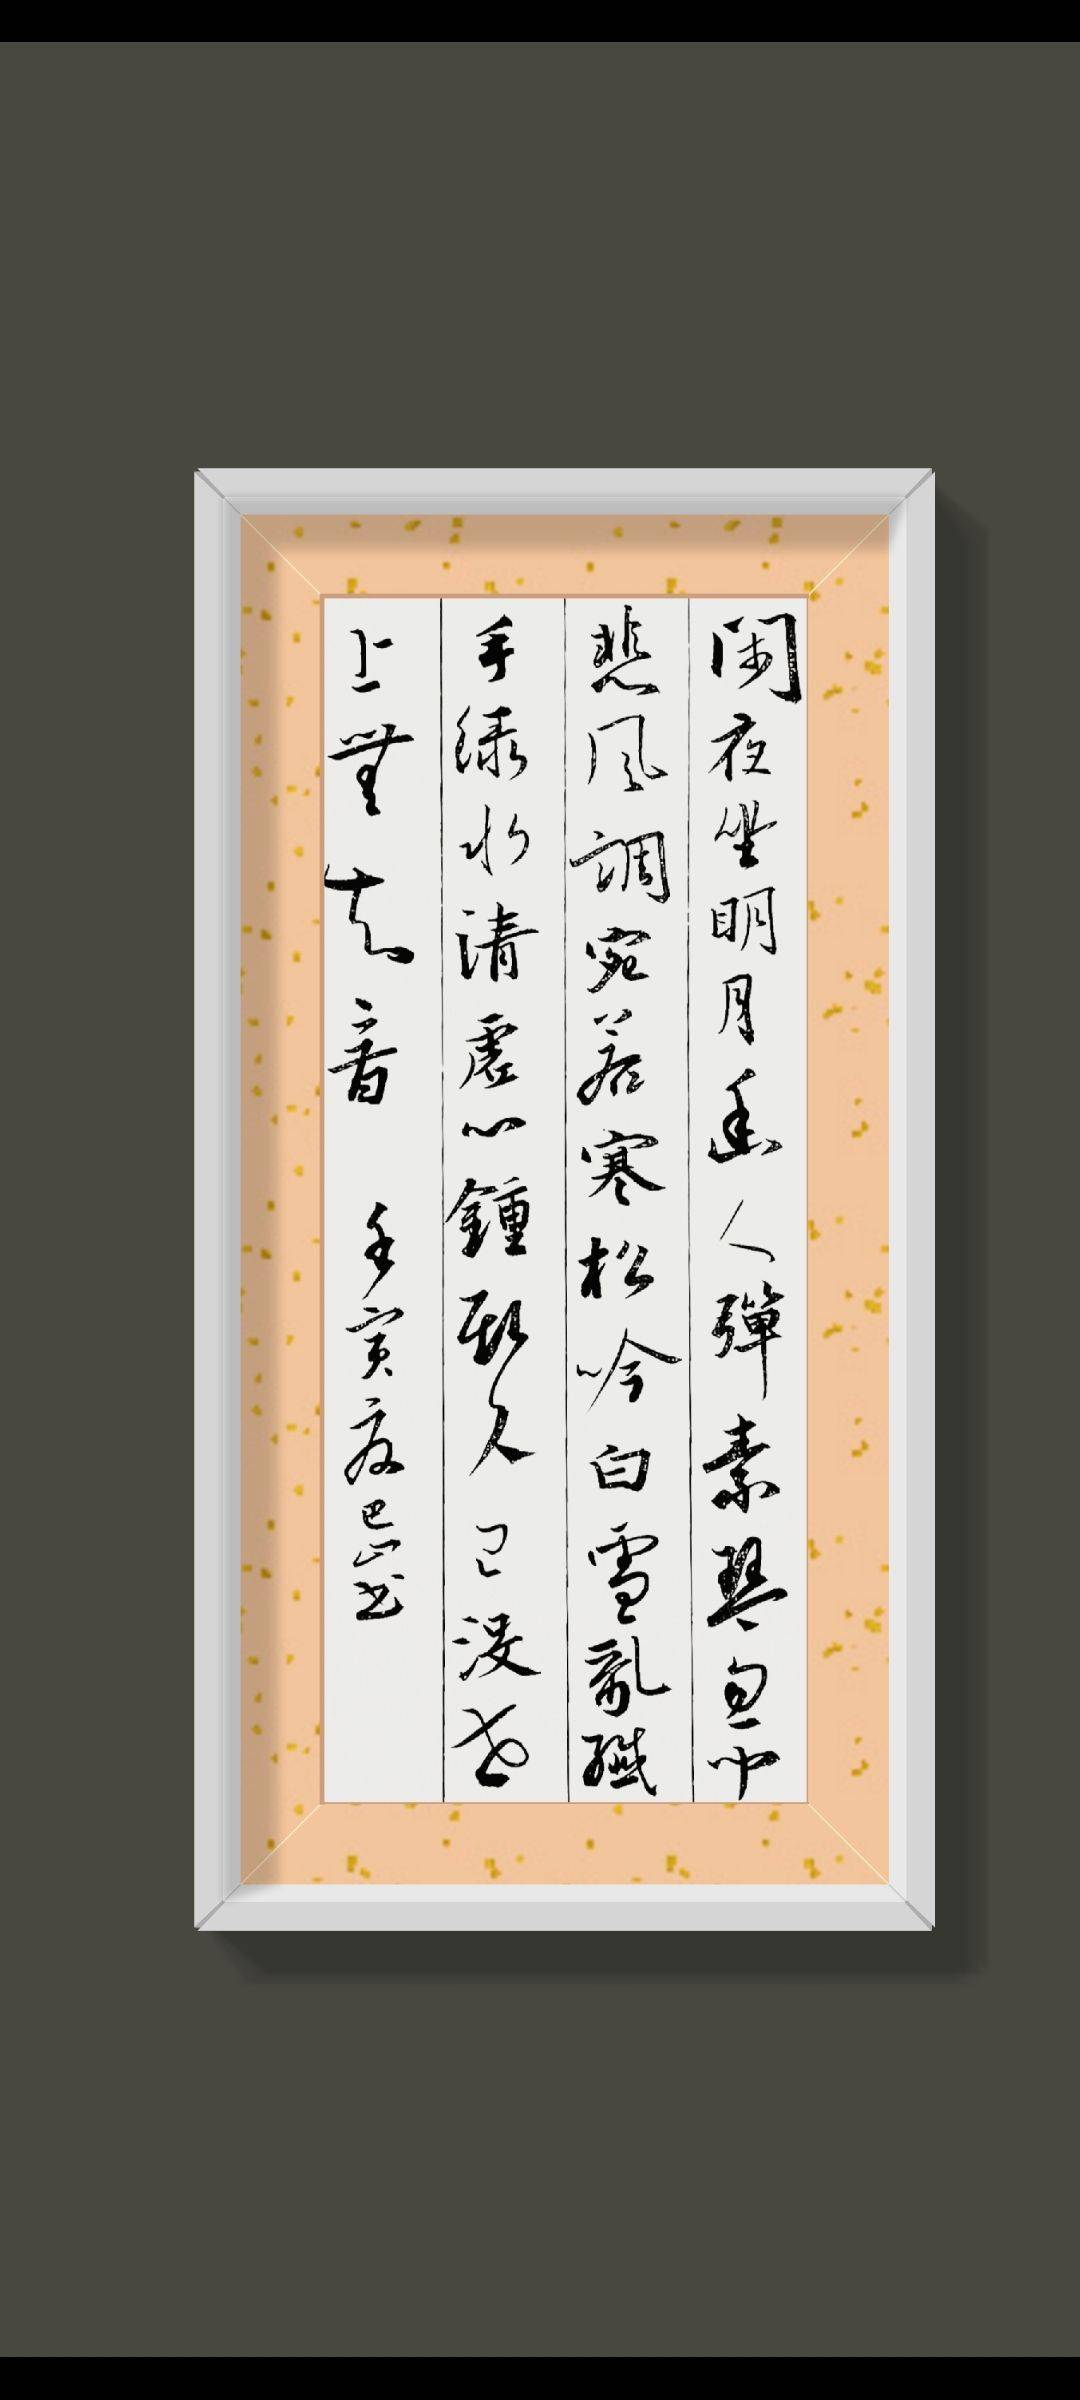 閑夜坐明月幽人彈素琴忽聞
悲風調宛若寒松吟白雪亂纖
手綠水清虛心鍾期久已沒世
上無知音 壬寅夏巴山書